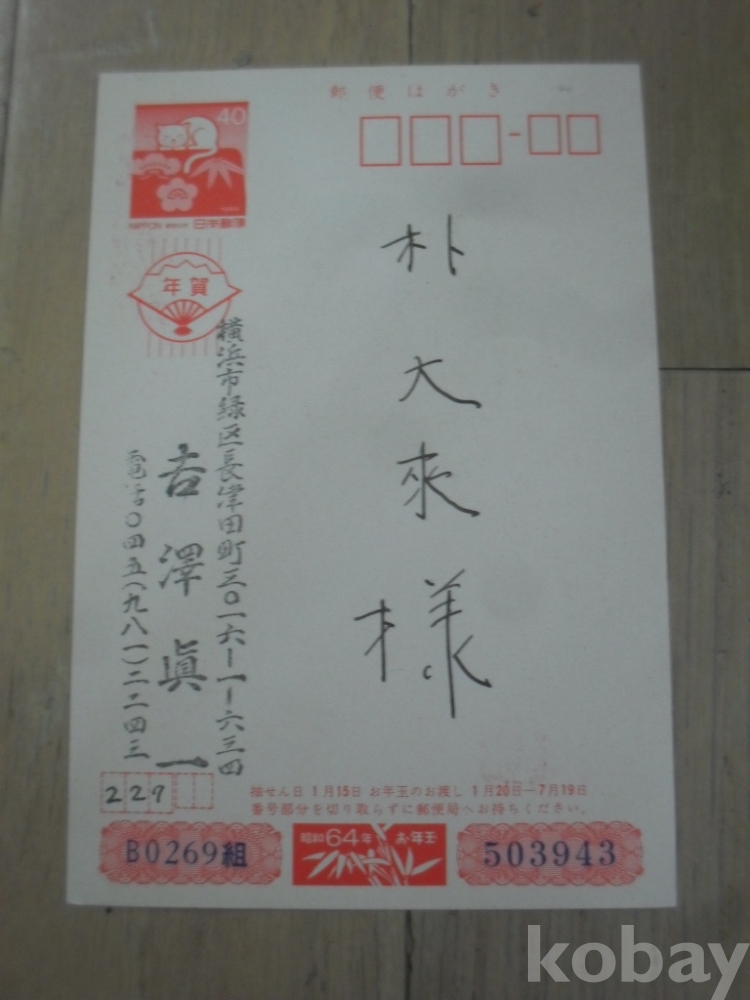 郵便はがき
40
NIPPON 日本郵便
年賀
朴大來様
横浜市緑区長津田町三〇一六ー一ー六三四
吉澤眞一
電話〇四五(九八一)二二四三
229
抽せん日 1月15日 お年玉のお渡し 1月20日―7月19日
番号部分を切り取らずに郵便局へお持ちください。
B0269組
昭和64年お年玉
503943
kobay